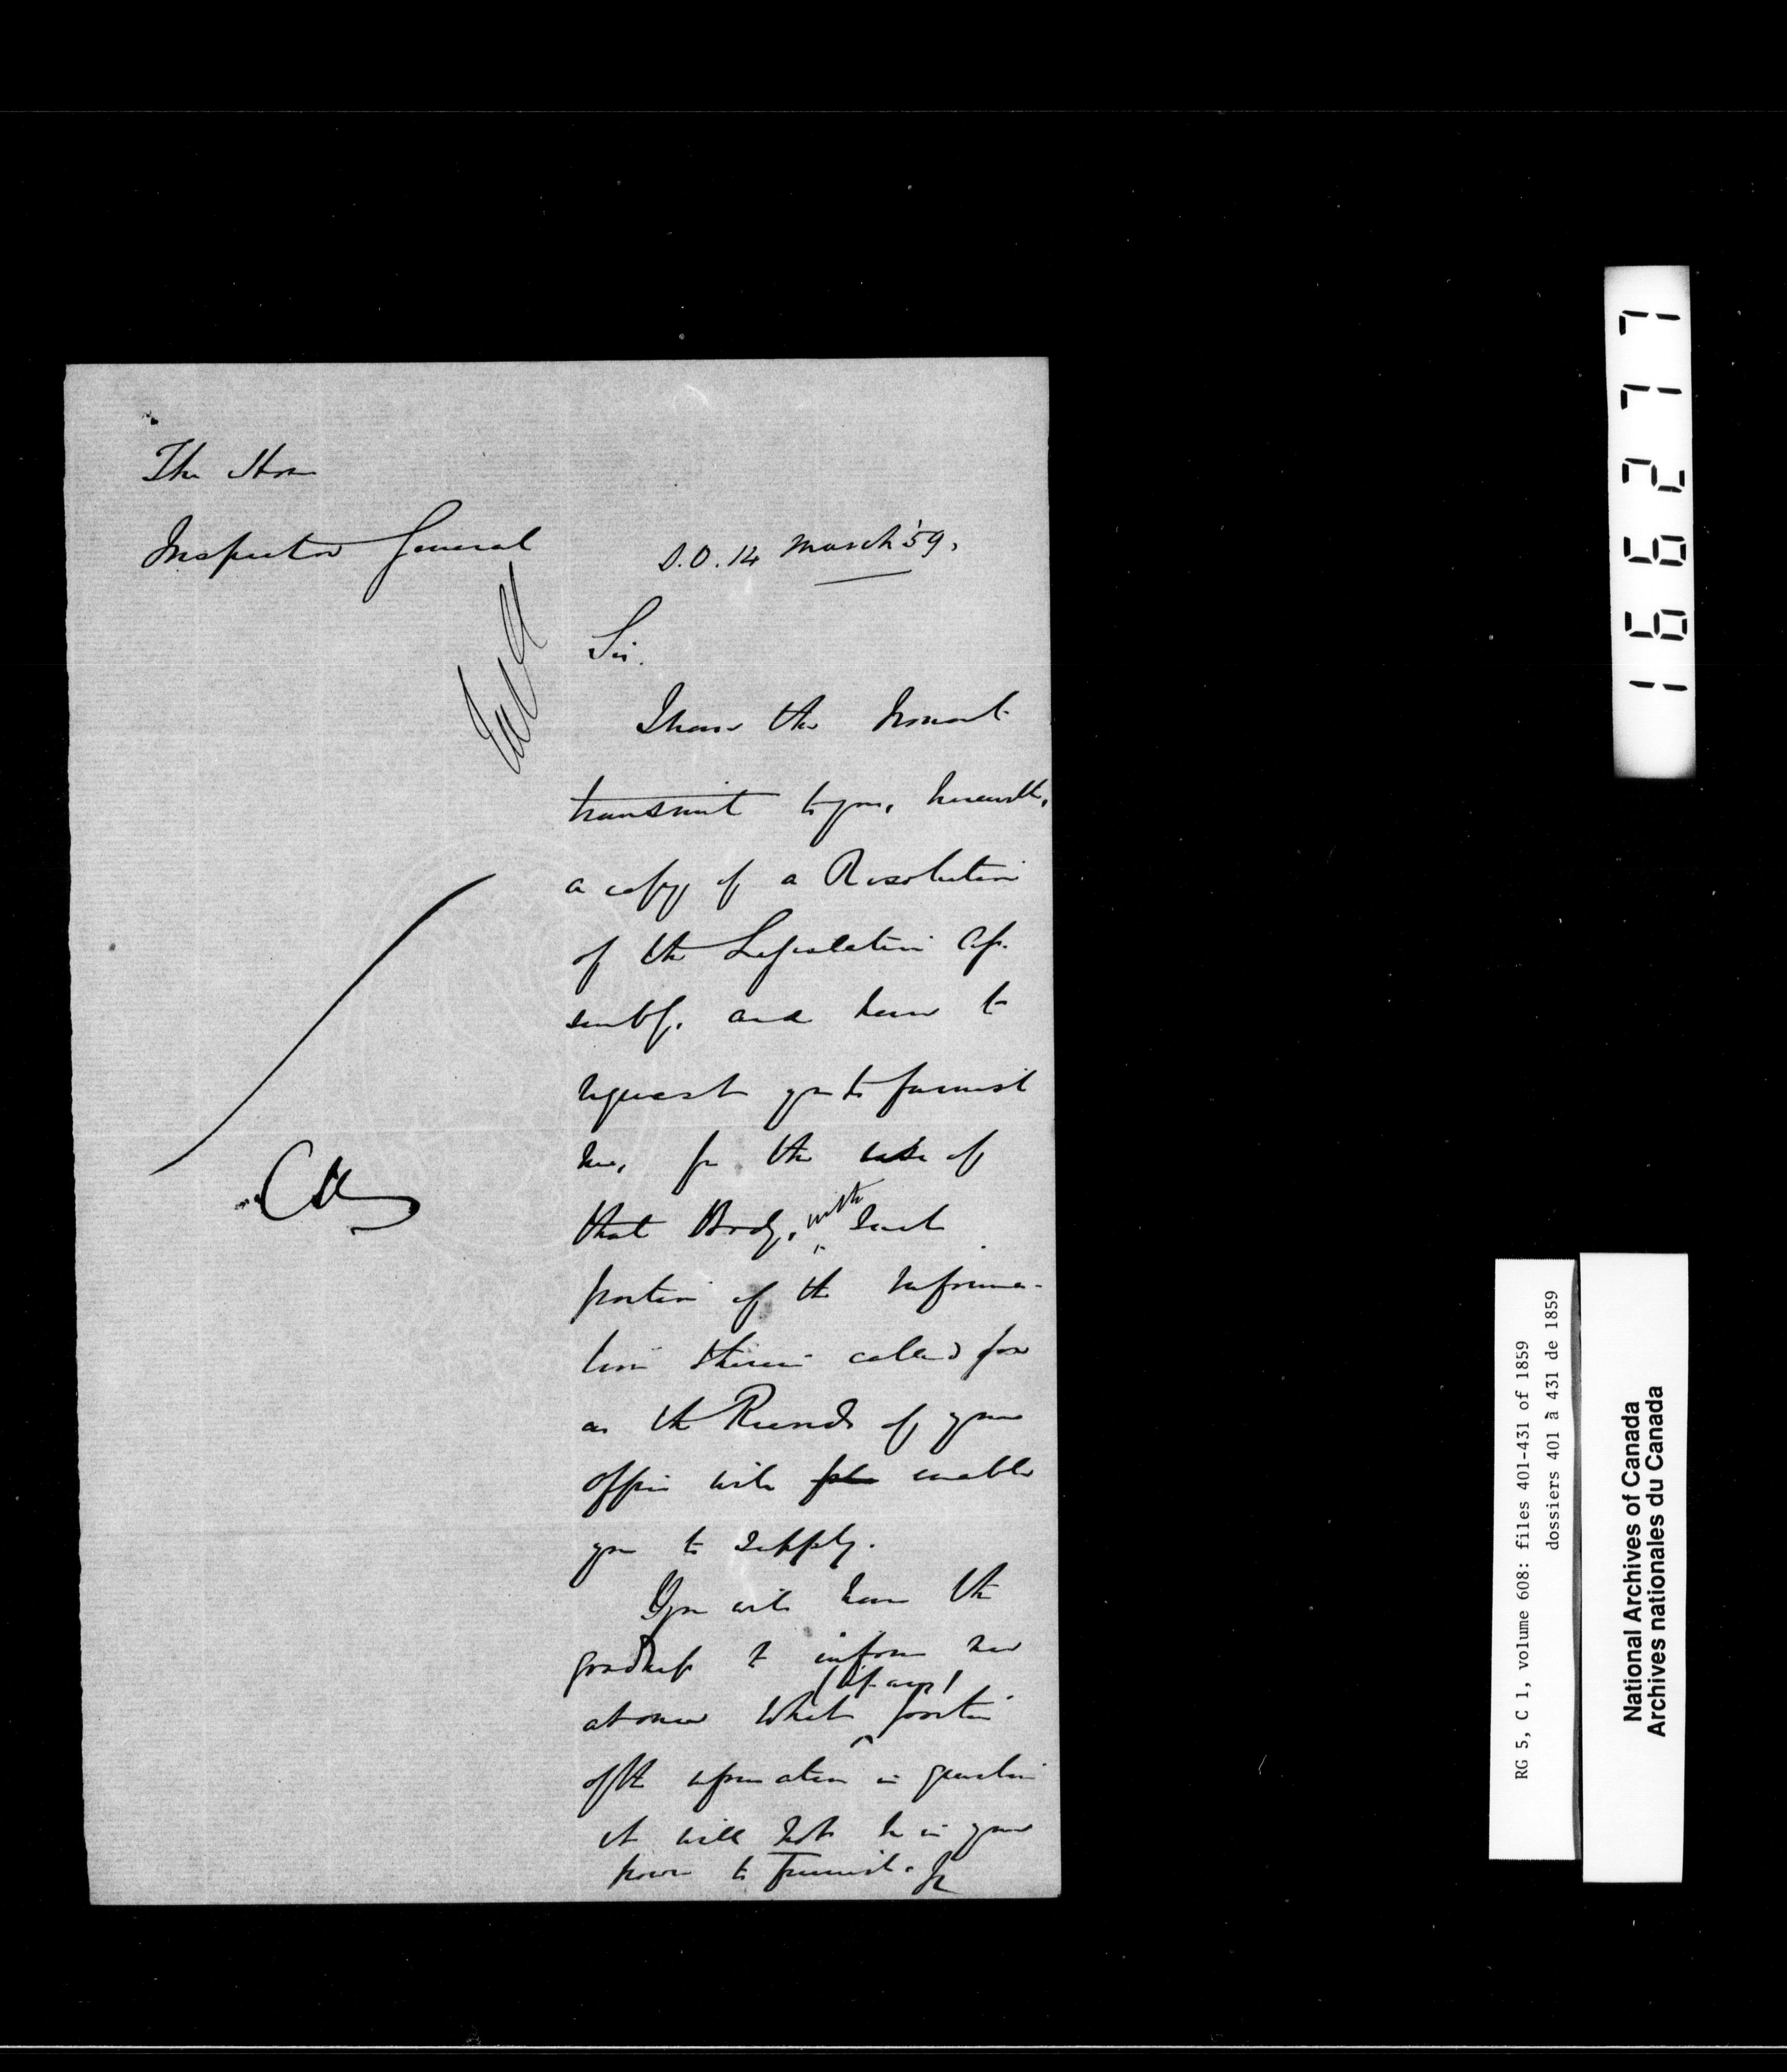 The Hon
Inspector General
S.O. 14 March '59.
Sir.
I have the honor to
transmit to you, herewith,
a copy of a Resolution
of the Legislative As-
sembly, and have to
request you to furnish
me, for the use of
that Body, with such
portion of the informa-
tion therein called for
as the Records of your
office will enable
you to supply.
You will have the
goodness to inform me
at once what (if any)
portion
of the information in question
it will not be in your
power to furnish. &c
166277
RG 5, C 1, volume 608: files 401-431 of 1859
dossiers 401 à 431 de 1859
National Archives of Canada
Archives nationales du Canada